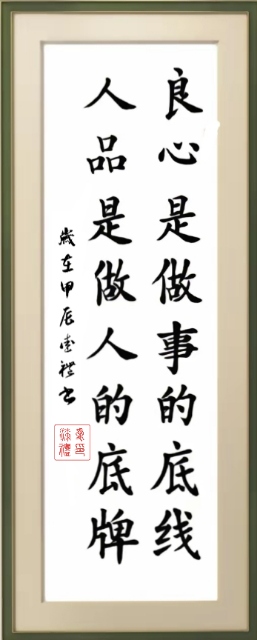 良心是做事的底线
人品是做人的底牌
岁在甲辰
书